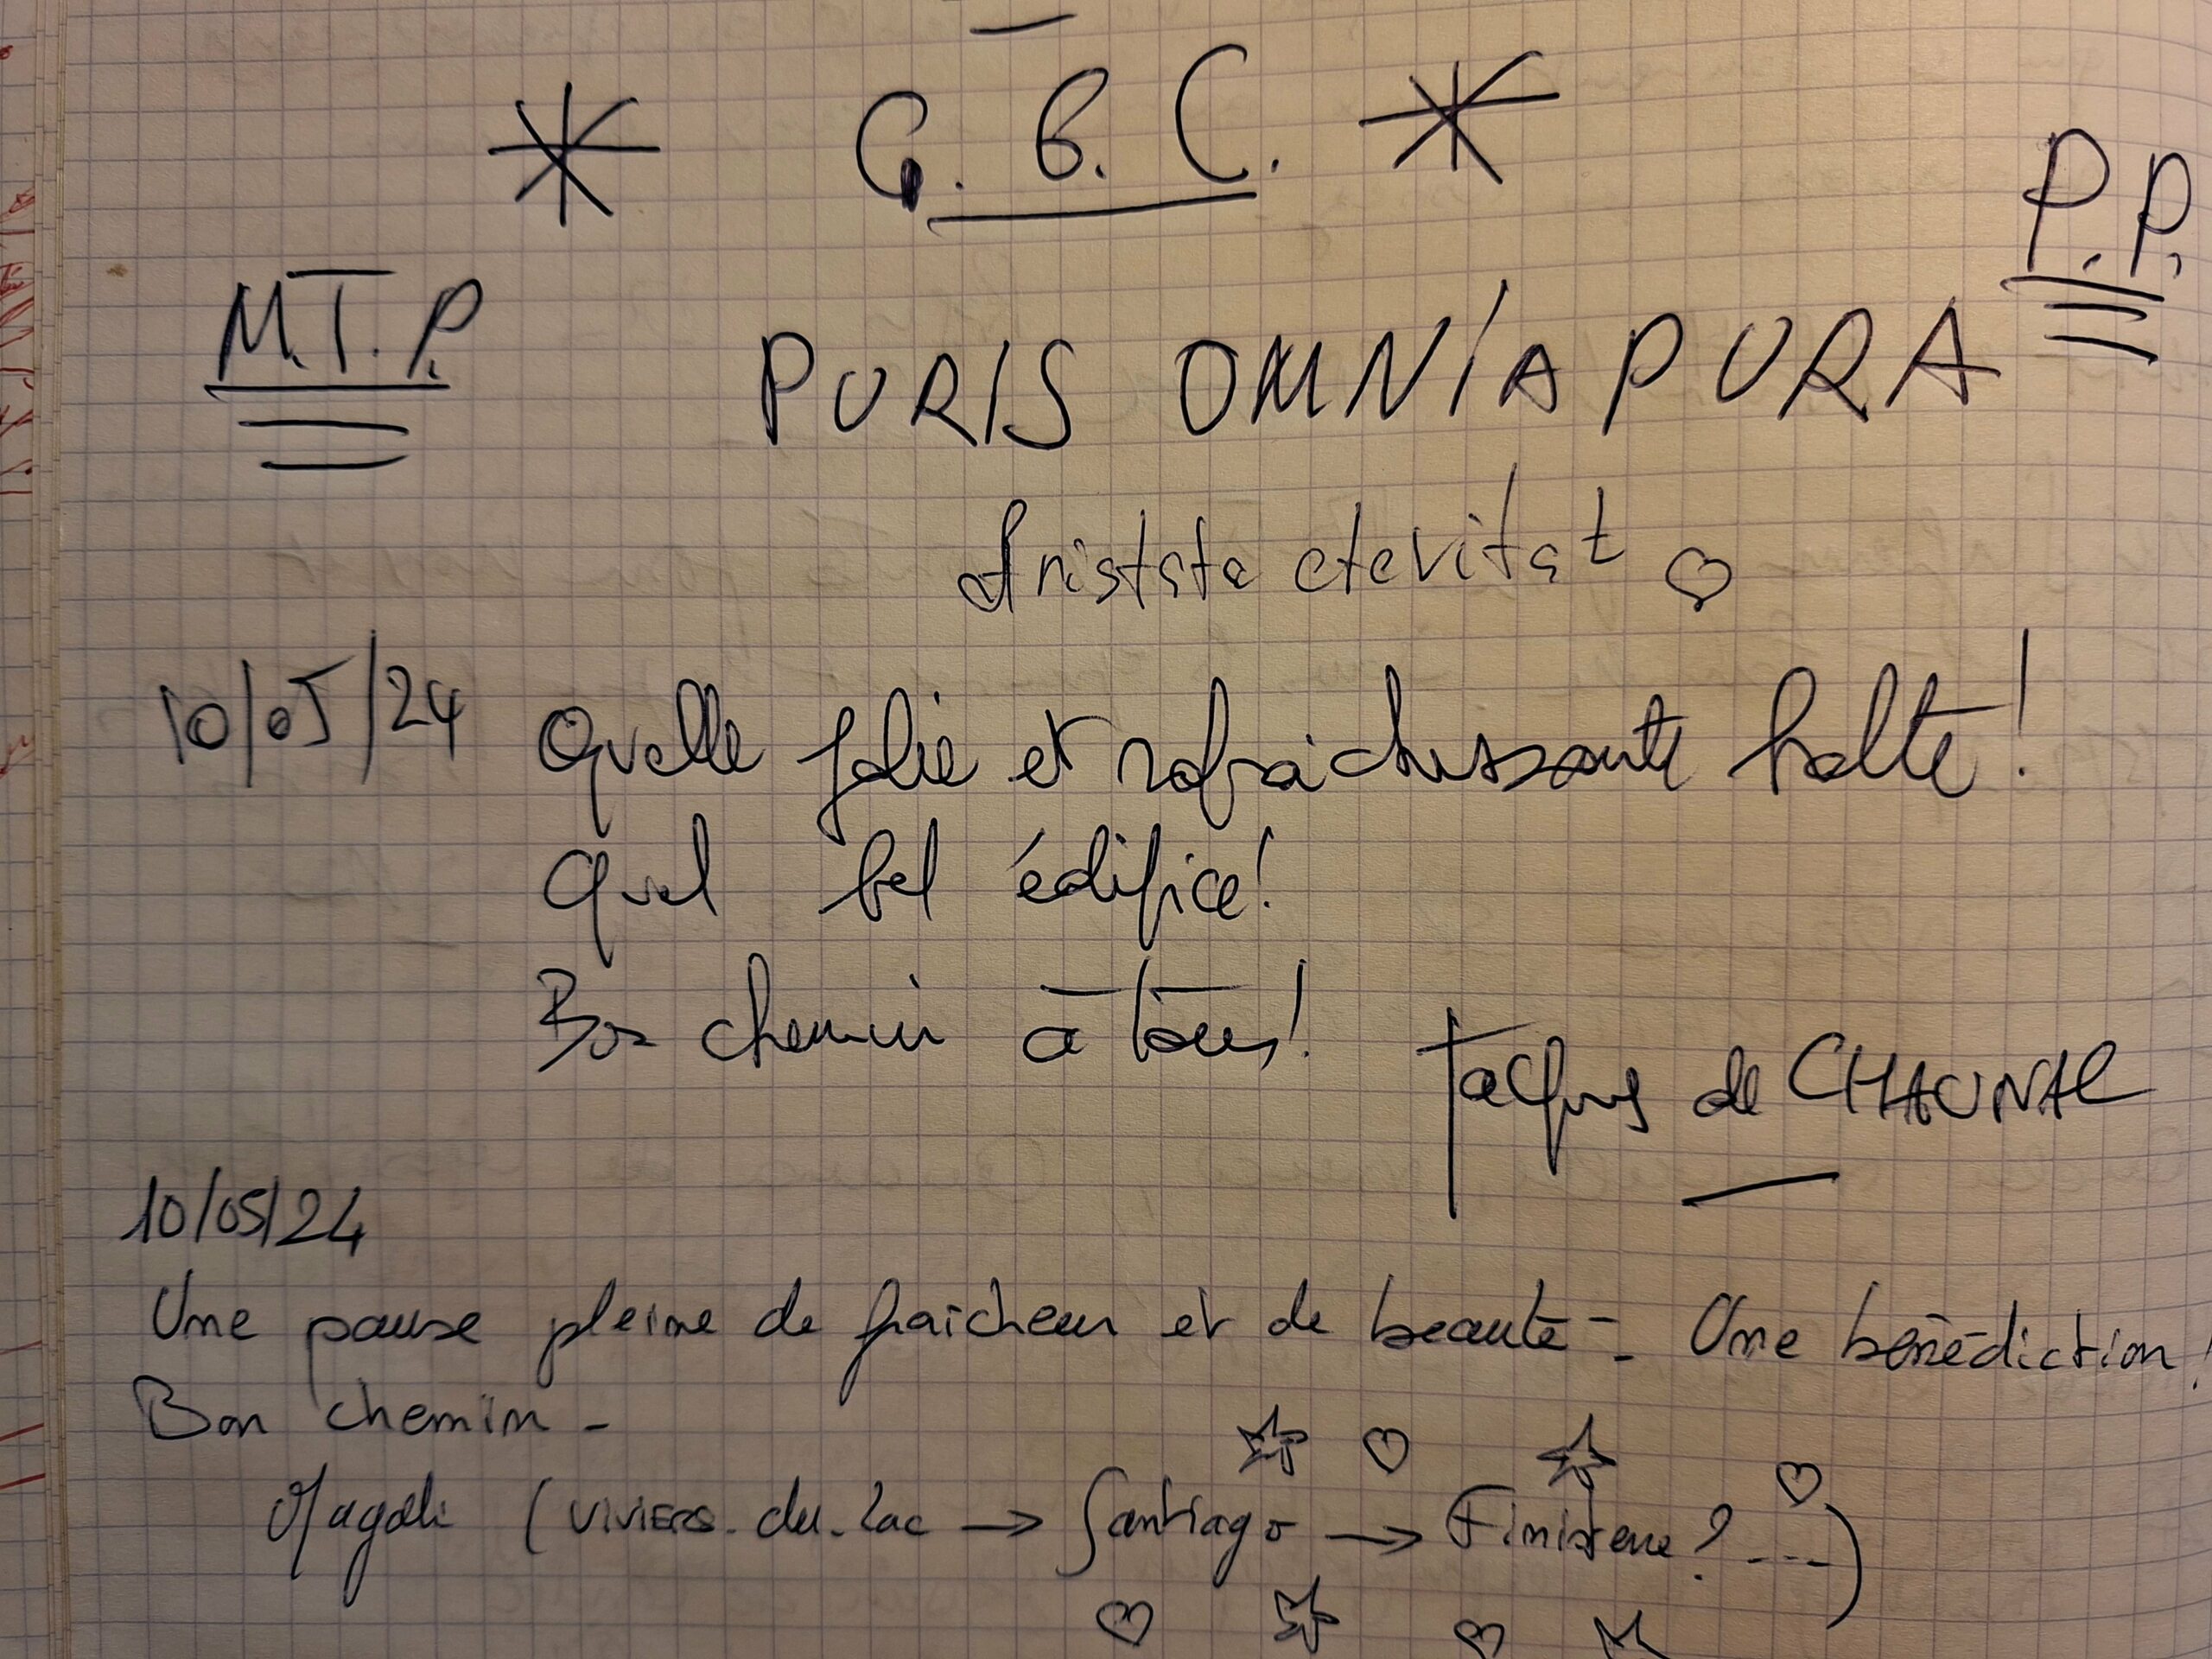 G. B. C.
P.P.
M.T.P.
PURIS OMNIA PURA
10/05/24 Quelle jolie et rafraichissante halte!
Quel bel édifice!
Bon chemin à tous!
Jacques de CHAUNAC
10/05/24
Une pause pleine de fraicheur et de beauté - Une bénédiction!
Bon chemin -
Magali (VIVIERS-du-Lac → Santiago → Finistere? ...)